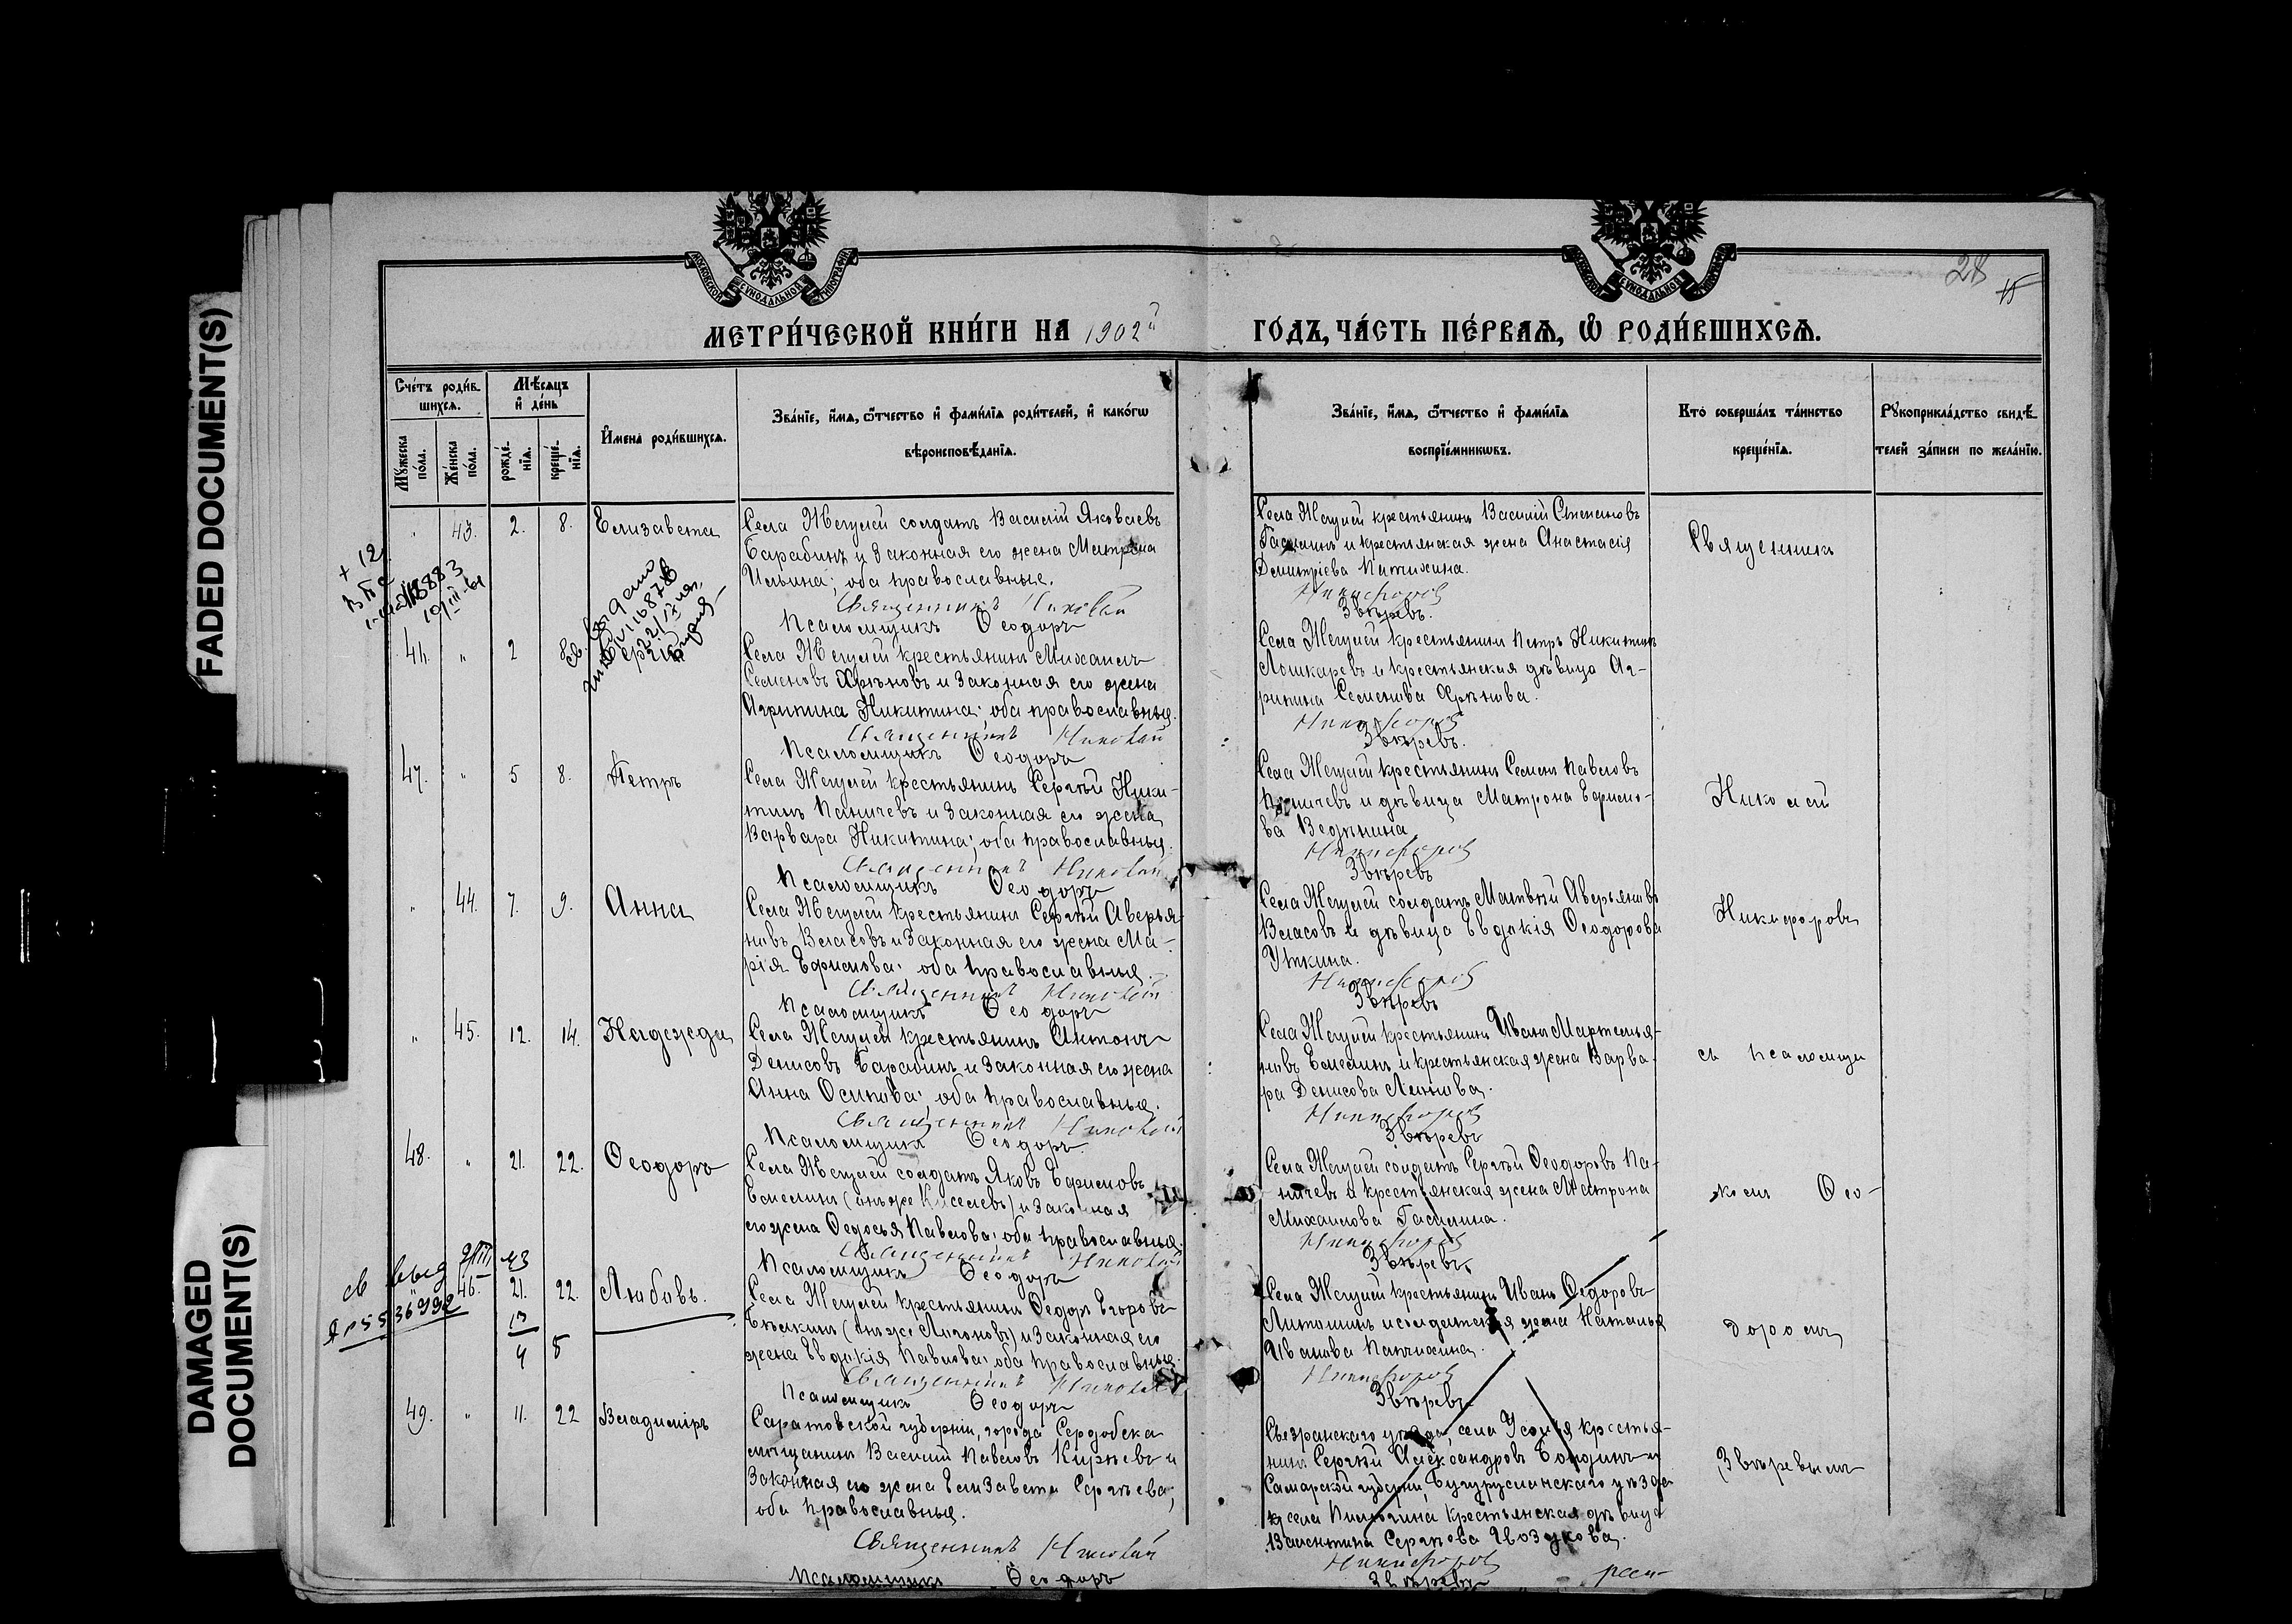 FADED DOCUMENT(S)
DAMAGED
DOCUMENT(S)
МОСКОВСКОЙ СѴНОДАЛЬНОЙ ТИПОГРАФІИ
МОСКОВСКОЙ СѴНОДАЛЬНОЙ ТИПОГРАФІИ
28
МЕТРИ́ЧЕСКОЙ КНИ́ГИ НА 1902й
ГО́ДЪ, ЧА́СТЬ ПЕ́РВАѦ, Ѡ҆ РОДИ́ВШИХСѦ.
Сче́тъ роди́в-
шихсѧ.
Мѣ́сяцъ
и҆ де́нь
Мꙋ́жеска
по́ла.
Же́нска
по́ла.
рожде́-
нїѧ.
креще́-
нїѧ.
И҆мена̀ роди́вшихсѧ.
Зва́нїе, и҆́мѧ, ѻ҆́тчество и҆ фами́лїѧ роди́телей, и҆ како́гѡ
вѣроисповѣ́данїѧ.
Зва́нїе, и҆́мѧ, ѻ҆́тчество и҆ фами́лїѧ
воспрїе́мникѡвъ.
Кто̀ соверша́лъ та́инство
креще́нїѧ.
Рꙋкоприкла́дство свидѣ́-
телей за́писи по жела́нїю.
" 43. 2. 8. Елизавета
Села Жегулей солдатъ Василій Яковлевъ
Барабинъ и законная его жена Матрона
Ильина; оба православные.
Священникъ Николай
Псаломщикъ Ѳеодоръ
Села Жегулей крестьянинъ Василій Степановъ
и крестьянская жена Анастасія
Димитріева
Никифоровъ
Звѣревъ.
Священникъ
" 2 8.
Села Жегулей крестьянинъ Михаилъ
Семеновъ Хрѣновъ и законная его жена
Агрипина Никитина; оба православные.
Священникъ Николай
Псаломщикъ Ѳеодоръ
Села Жегулей крестьянинъ Петръ Никитинъ
Лошкаревъ и крестьянская дѣвица Аг-
рипина Семенова Хрѣнова.
Никифоровъ
Звѣревъ.
47. " 5 8. Петръ
Села Жегулей крестьянинъ Сергѣй Ники-
тинъ Паничевъ и законная его жена
Варвара Никитина; оба православные.
Священникъ Николай
Псаломщикъ Ѳеодоръ
Села Жегулей крестьянинъ Семенъ Павловъ
Паничевъ и дѣвица Матрона Ефимо-
ва
Никифоровъ
Звѣревъ
Николай
" 44. 7. 9. Анна
Села Жегулей крестьянинъ Сергѣй Аверья-
новъ Власовъ и законная его жена Ма-
рія Ефимова; оба православные.
Священникъ Николай
Псаломщикъ Ѳеодоръ
Села Жегулей солдатъ Матвѣй Аверьяновъ
Власовъ и дѣвица Евдокія Ѳеодорова
Уткина.
Никифоровъ
Звѣревъ
Никифоровъ
" 45. 12. 14. Надежда
Села Жегулей крестьянинъ Антонъ
Денисовъ Барабинъ и законная его жена
Анна Осипова; оба православные.
Священникъ Николай
Псаломщикъ Ѳеодоръ
Села Жегулей крестьянинъ Иванъ Мартемья-
новъ Емелинъ и крестьянская жена Варва-
ра Денисова
Никифоровъ
Звѣревъ
съ псаломщи
48. " 21. 22. Ѳеодоръ
Села Жегулей солдатъ Яковъ Ефимовъ
Емелинъ (онъ же Киселевъ) и законная
его жена Ѳедосья Павлова; оба православные.
Священникъ Николай
Псаломщикъ Ѳеодоръ
Села Жегулей солдатъ Сергѣй Ѳеодоровъ Па-
ничевъ и крестьянская жена Матрона
Михаилова
Никифоровъ
Звѣревъ
комъ Ѳео-
" 46. 21. 22. Любовь.
Села Жегулей крестьянинъ Ѳедоръ Егоровъ
(онъ же) и законная его
жена Евдокія Павлова; оба православные.
Священникъ Николай
Псаломщикъ Ѳеодоръ
Села Жегулей крестьянинъ Иванъ Ѳедоровъ
и солдатская жена Наталья
Иванова
Никифоровъ
Звѣревъ
доромъ
49. " 11. 22 Владиміръ
Саратовской губерніи, города Сердобска
мѣщанинъ Василій Павловъ Кирѣевъ и
законная его жена Елизавета Сергѣева;
оба православные.
Священникъ Николай
Псаломщикъ Ѳеодоръ
Сызранскаго уѣзда, села Усолья крестья-
нинъ Сергѣй Александровъ и
Самарской губерніи, Бугурусланскаго уѣзда
села крестьянская дѣвица
Валентина Сергѣева Гвоздкова.
Никифоровъ
Звѣревъ
Звѣревымъ